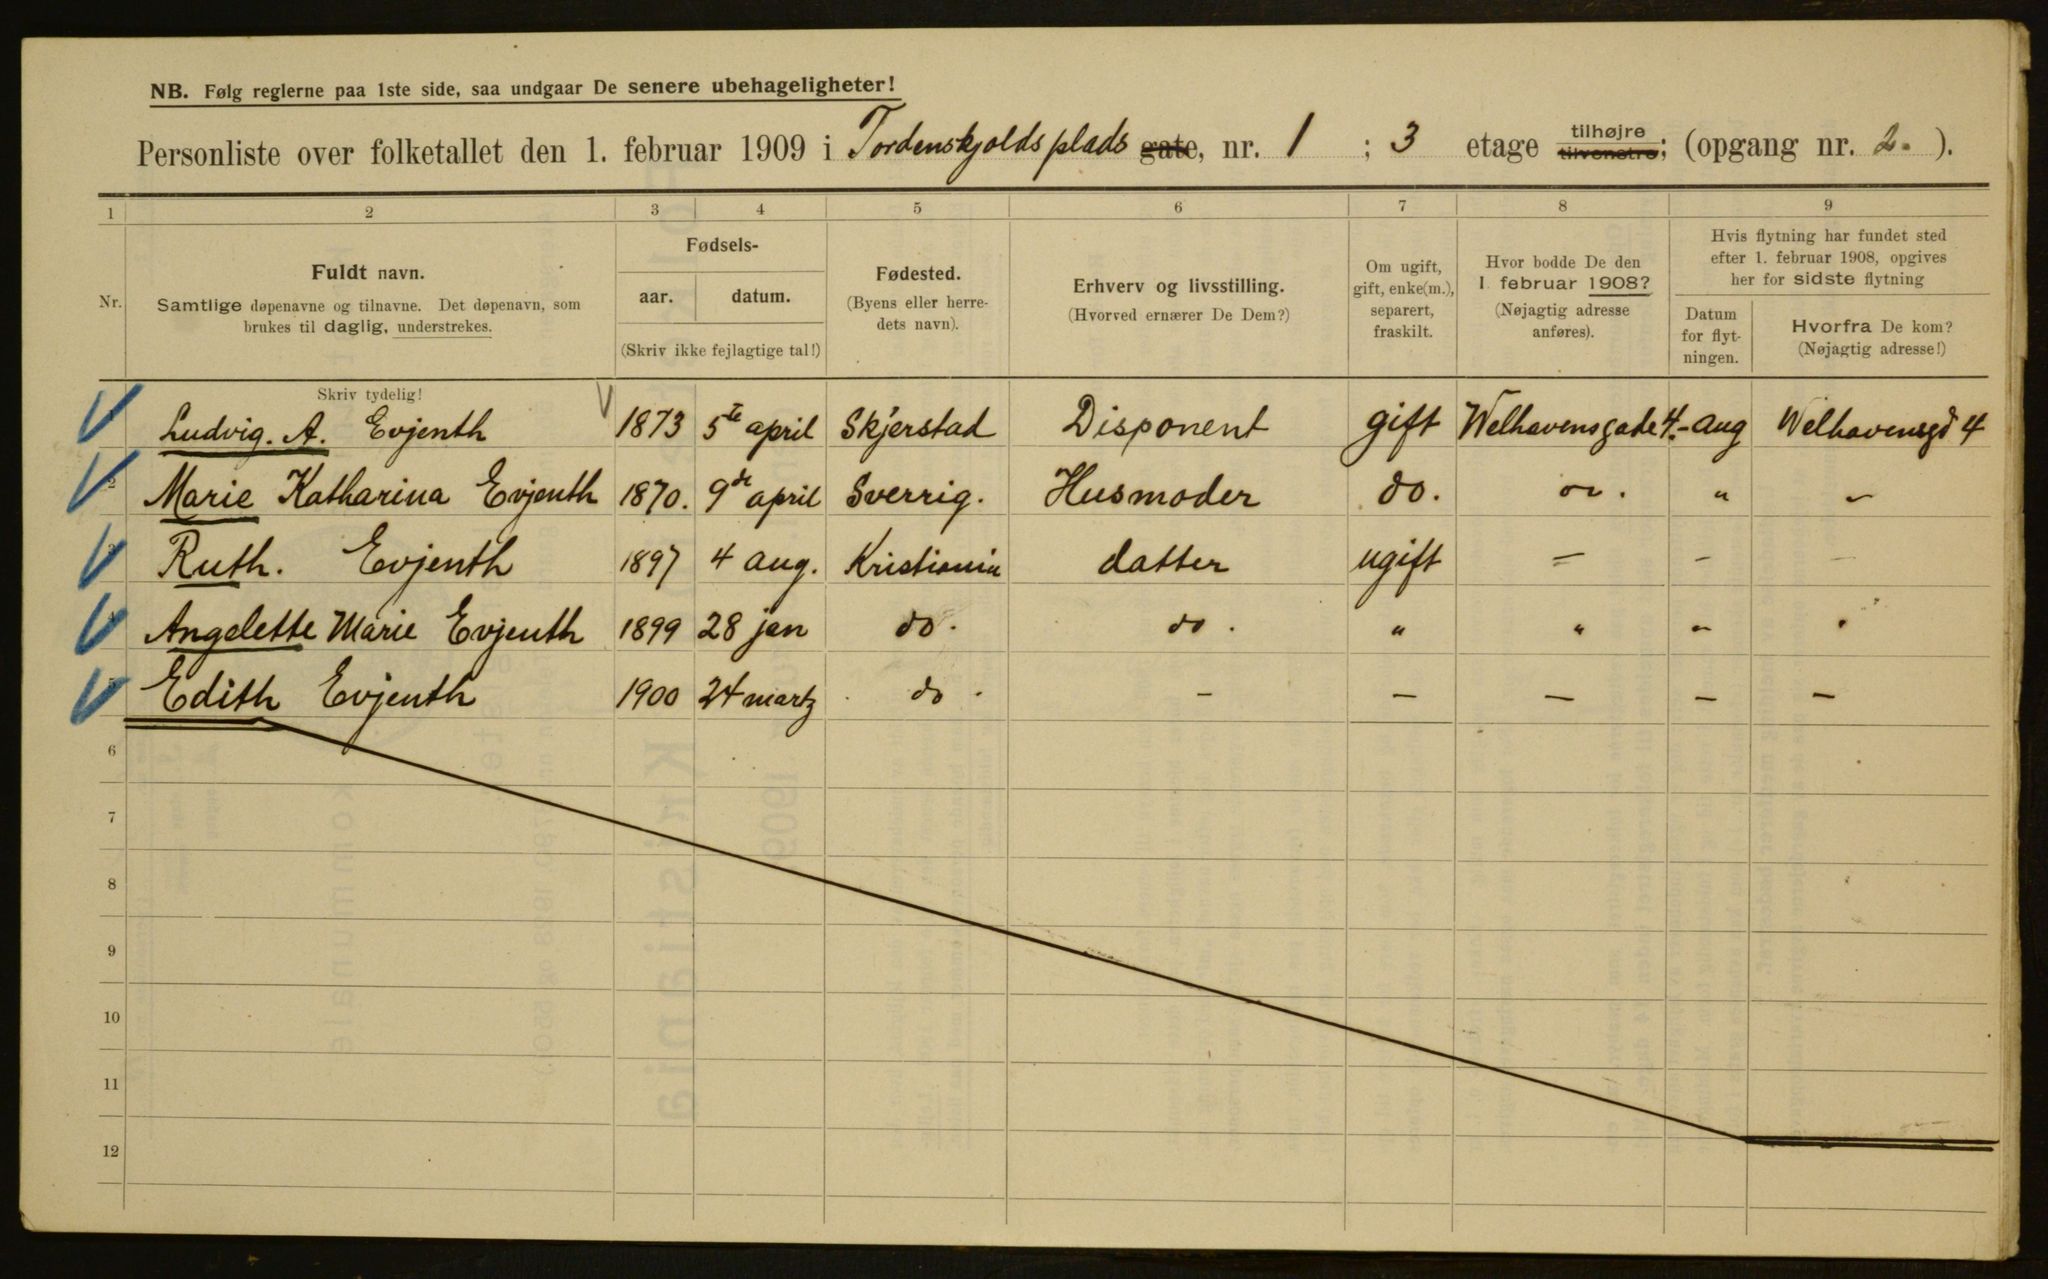 NB. Følg reglerne paa 1ste side, saa undgaar De senere ubehageligheter!
Personliste over folketallet den 1. februar 1909 i Tordenskjolds plads gate, nr. 1 ; 3 etage tilhøjre tilvenstre; (opgang nr. 2. ).
1 2 3 4 5 6 7 8 9
Nr.
Fuldt navn.
Samtlige døpenavne og tilnavne. Det døpenavn, som
brukes til daglig, understrekes.
Fødsels-
aar. datum.
(Skriv ikke fejlagtige tal!)
Fødested.
(Byens eller herre-
dets navn).
Erhverv og livsstilling.
(Hvorved ernærer De Dem?)
Om ugift,
gift, enke(m.),
separert,
fraskilt.
Hvor bodde De den
1. februar 1908?
(Nøjagtig adresse
anføres).
Hvis flytning har fundet sted
efter 1. februar 1908, opgives
her for sidste flytning
Datum
for flyt-
ningen.
Hvorfra De kom?
(Nøjagtig adresse!)
Skriv tydelig!
1 Ludvig. A. Evjenth 1873 5te april Skjerstad Disponent gift Welhavensgade 4.- aug Welhavensgd 4
2 Marie Katharina Evjenth 1870. 9de april Sverrig. Husmoder do. " . " "
3 Ruth. Evjenth 1897 4 aug. Kristiania datter ugift = – –
4 Angelette Marie Evjenth 1899 28 jan do. do. " " " "
5 Edith Evjenth 1900 24 martz do. – – – – –
6
7
8
9
10
11
12